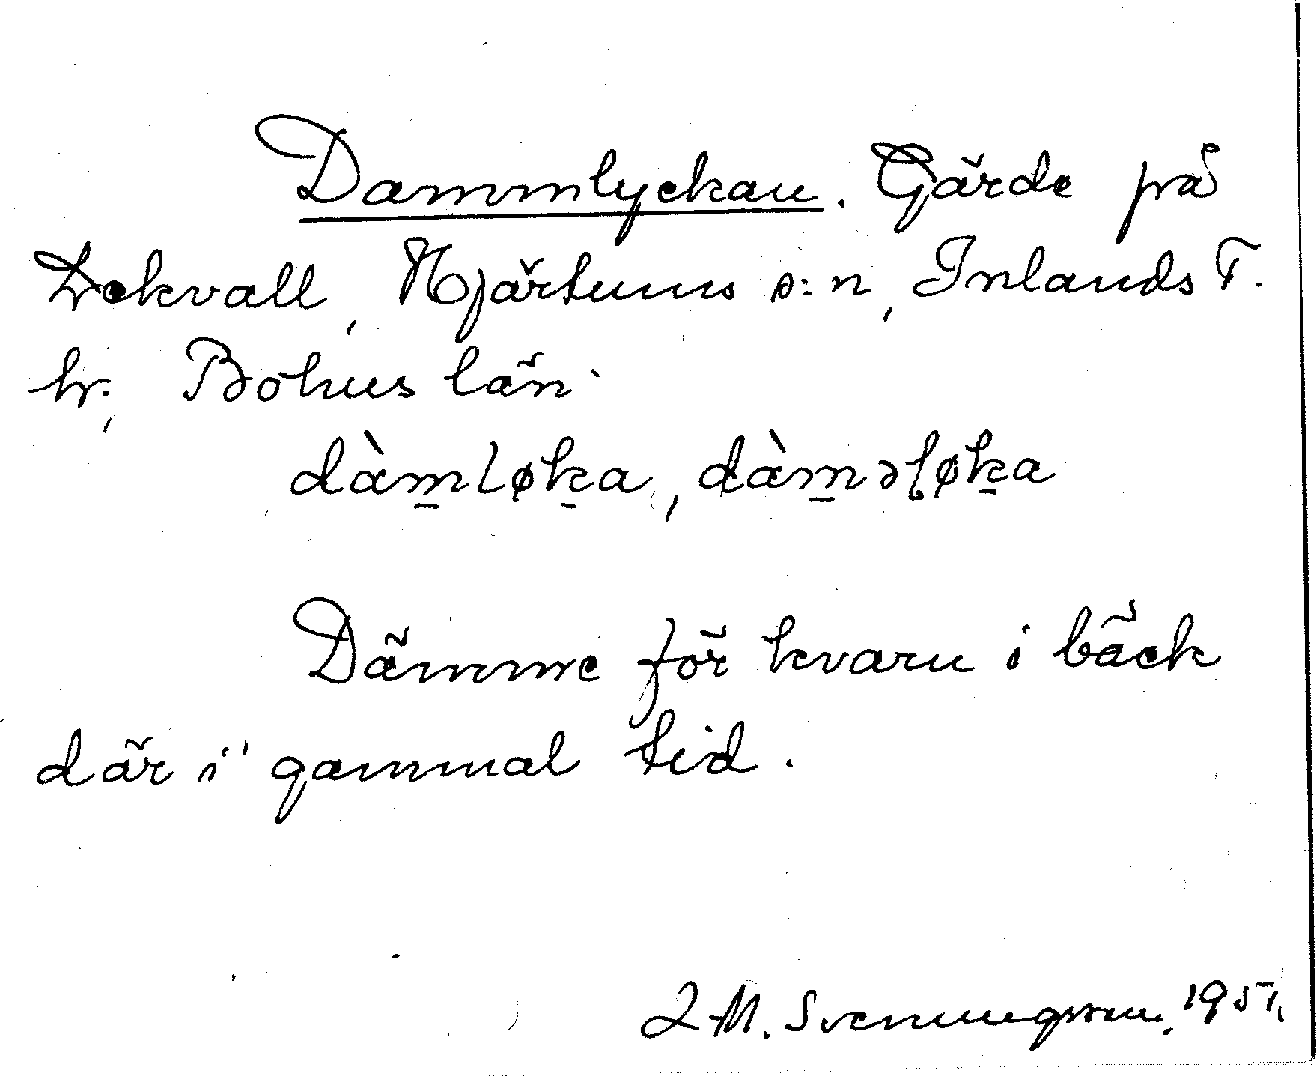 Dammlyckan. Gärde på
Lekvall, Hjärtums s:n, Inlands T.
hr., Bohus län.
dàm̲løk̲a, dàm̲əɭøk̲a
Dämme för kvarn i bäck
där i gammal tid.
M. Svenungsson, 1951.